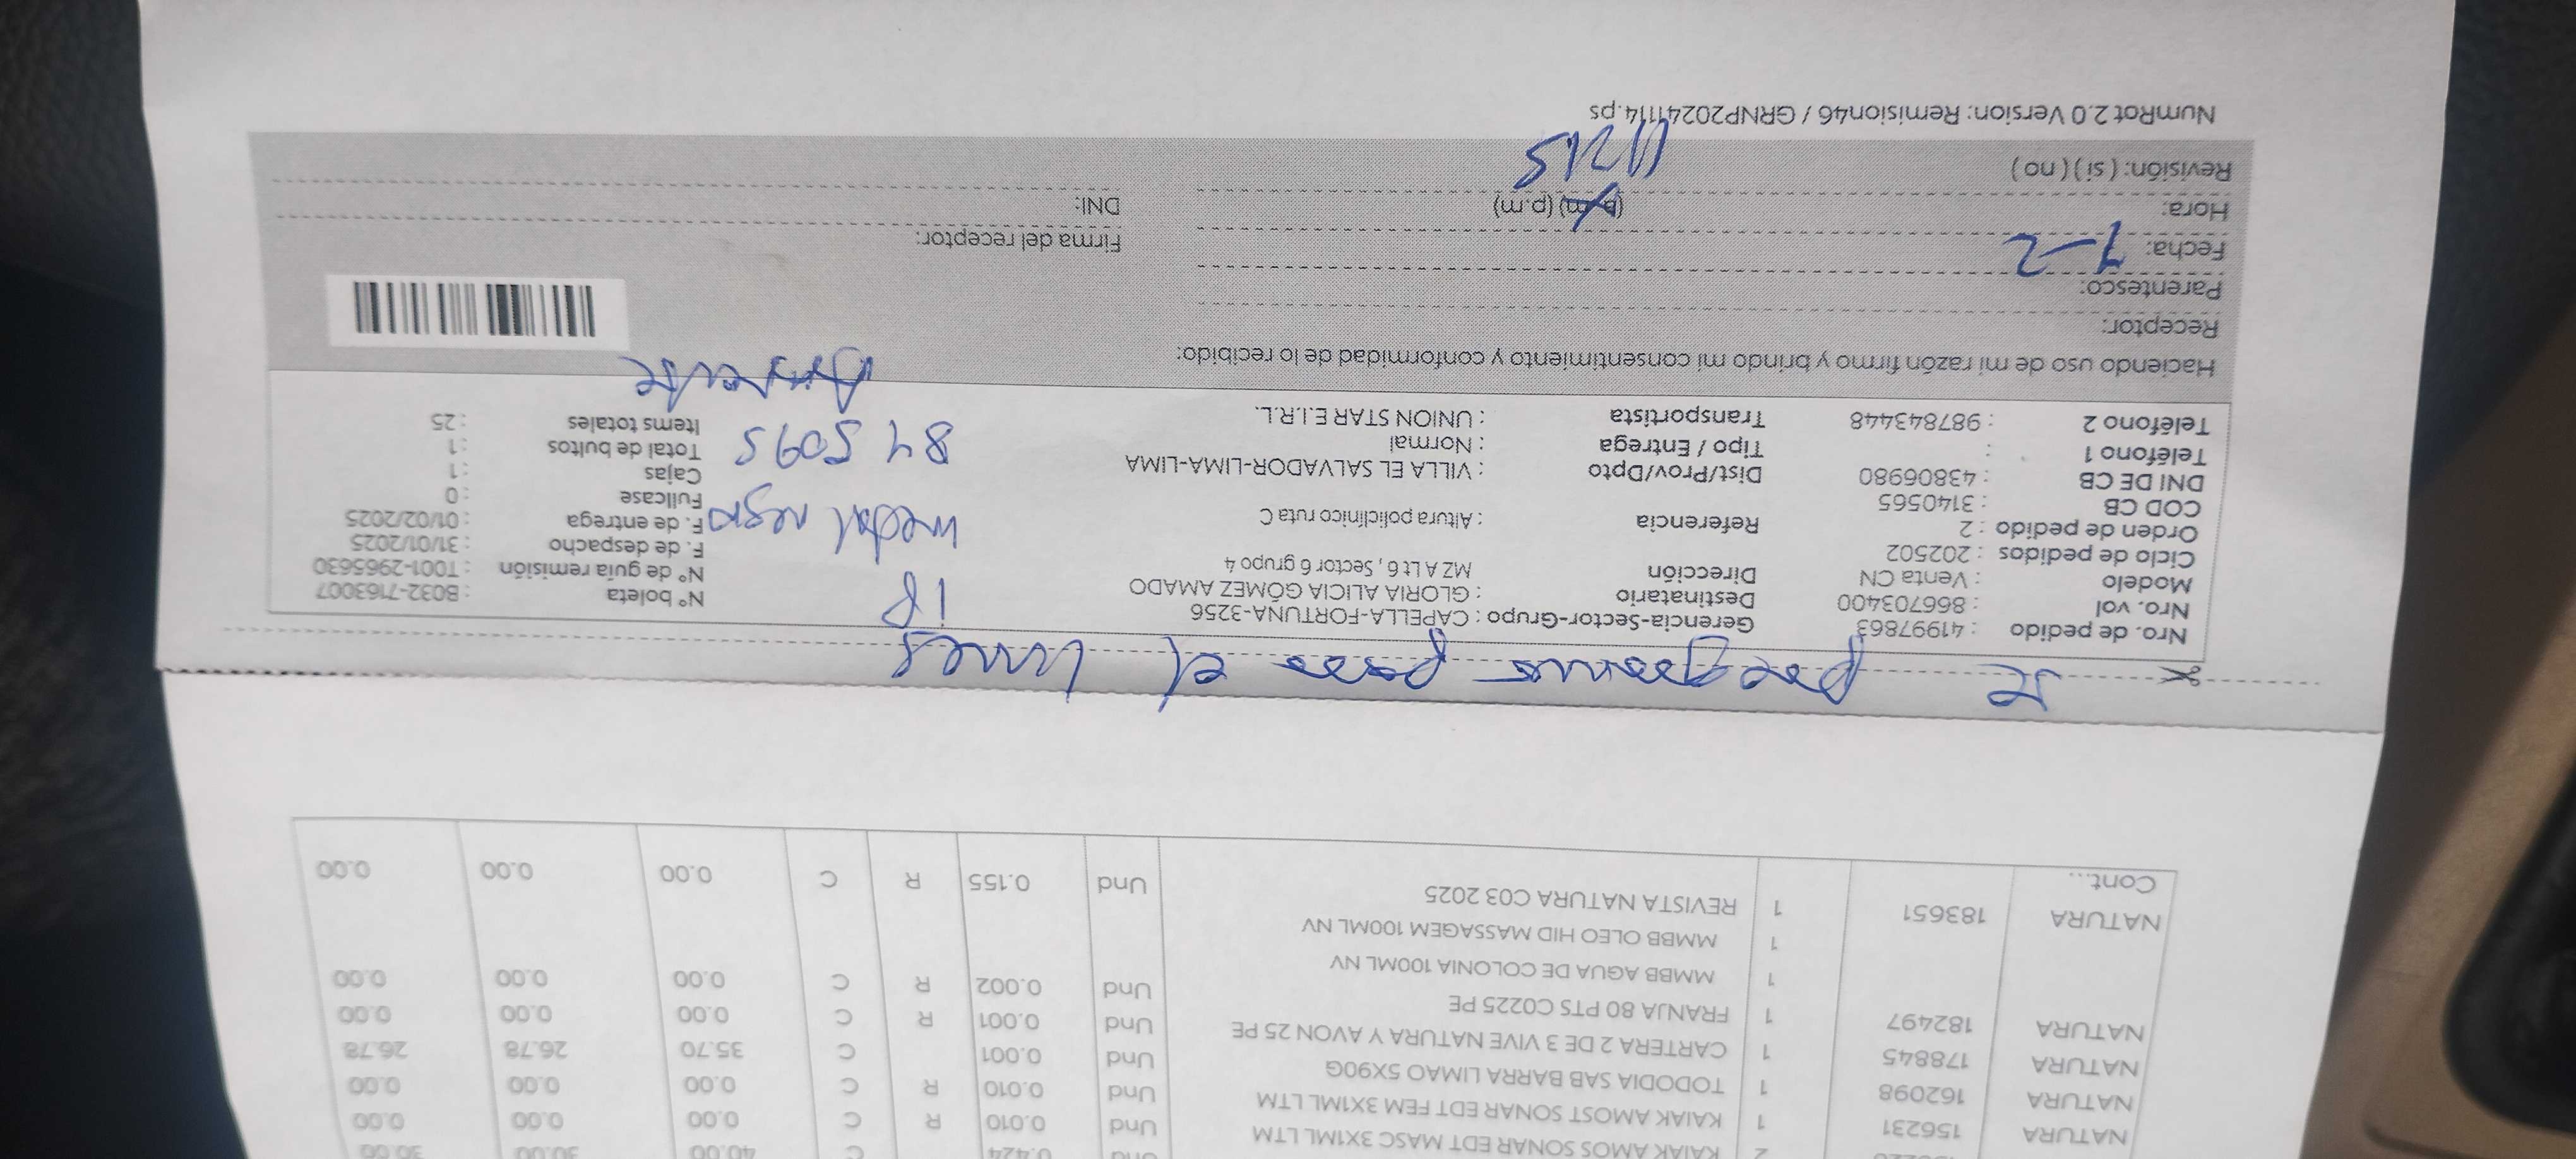 KAIAK AMOS SONAR EDT MASC 3X1ML LTM 2 Und 0.424 C 40.00 30.00 30.00
NATURA 156231 KAIAK AMOST SONAR EDT FEM 3X1ML LTM 1 Und 0.010 R C 0.00 0.00 0.00
NATURA 162098 TODODIA SAB BARRA LIMAO 5X90G 1 Und 0.010 R C 0.00 0.00 0.00
NATURA 178845 CARTERA 2 DE 3 VIVE NATURA Y AVON 25 PE 1 Und 0.001 C 35.70 26.78 26.78
NATURA 182497 FRANJA 80 PTS C0225 PE 1 Und 0.001 R C 0.00 0.00 0.00
MMBB AGUA DE COLONIA 100ML NV 1 Und 0.002 R C 0.00 0.00 0.00
MMBB OLEO HID MASSAGEM 100ML NV 1
NATURA 183651 REVISTA NATURA C03 2025 1 Und 0.155 R C 0.00 0.00 0.00
Cont...
el lunes
Nro. de pedido : 41997863
Nro. vol : 866703400
Modelo : Venta CN
Ciclo de pedidos : 202502
Orden de pedido : 2
COD CB : 3140565
DNI DE CB : 43806980
Teléfono 1 :
Teléfono 2 : 987843448
Gerencia-Sector-Grupo : CAPELLA-FORTUNA-3256
Destinatario : GLORIA ALICIA GÓMEZ AMADO
Dirección MZ A Lt 6 , Sector 6 grupo 4
Referencia : Altura policlínico ruta C
Dist/Prov/Dpto : VILLA EL SALVADOR-LIMA-LIMA
Tipo / Entrega : Normal
Transportista : UNION STAR E.I.R.L.
1P
metal negro
845095
Ausente
N° boleta : B032-7163007
N° de guía remisión : T001-2965630
F. de despacho : 31/01/2025
F. de entrega : 01/02/2025
Fullcase : 0
Cajas : 1
Total de bultos : 1
Items totales : 25
Haciendo uso de mi razón firmo y brindo mi consentimiento y conformidad de lo recibido:
Receptor:
Parentesco:
Fecha: 1-2
Hora: (a.m) (p.m)
Revisión: ( si ) ( no ) 11215
Firma del receptor:
DNI:
NumRot 2.0 Version: Remision46 / GRNP20241114.ps